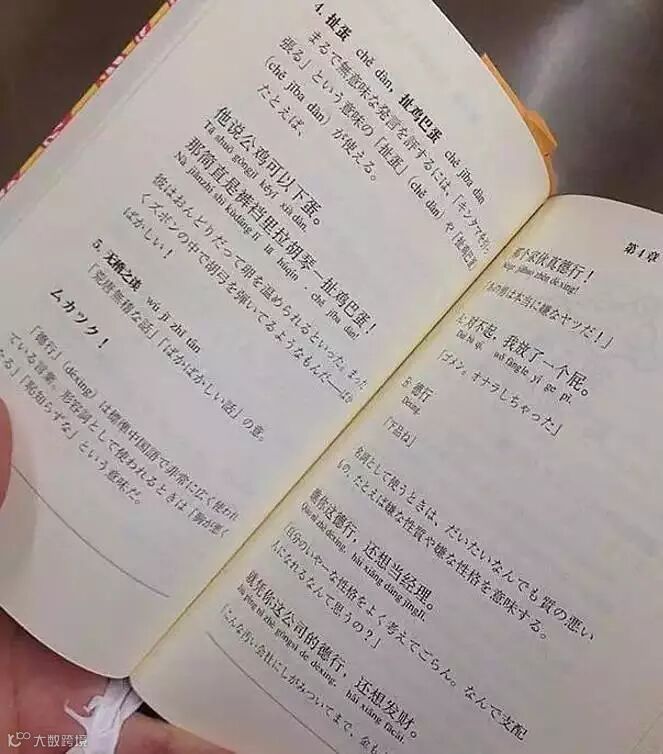 4. 扯蛋 chě dàn, 扯鸡巴蛋 chě jība dàn
まるで無意味な発言を評するには、「キンタマを引っ
張る」という意味の「扯蛋」(chě dàn) や「扯鸡巴
(chě jība dàn) が使える。
たとえば、
他说公鸡可以下蛋。
Tā shuō gōngjī kěyǐ xià dàn.
那简直是裤裆里拉胡琴—扯鸡巴蛋!
Nà jiǎnzhí shì kùdāng lǐ lā húqín - chě jība dàn!
彼はおんどりだって卵を温められるといった。まった
くズボンの中で胡弓を弾いてるようなもんだ—ば
ばかしい!
5. 无稽之谈 wú jī zhī tán
「荒唐無稽な話」「ばかばかしい話」の意。
ムカツク!
「德行」(déxing) は標準中国語で非常に広く使われ
ている言葉。形容詞として使われるときは「胸が悪く
なる」「恥知らずな」という意味だ。
第4章
那个家伙真德行!
jiāhuo zhēn déxing!
の男は本当に嫌なヤツだ!」
对不起,我放了一个屁。
Duì bu qǐ, wǒ fàngle yī ge pì.
「ゴメン。オナラしちゃった」
B: 德行
Déxing.
「下品ね」
名詞として使うときは、だいたいなんでも質の悪い
もの、たとえば嫌な性質や嫌な性格を意味する。
瞧你这德行,还想当经理。
Qiáo nǐ zhè déxing, hái xiǎng dāng jīnglǐ.
「自分のいやーな性格をよく考えてごらん。なんで支配
人になれるなんて思うの?」
就凭你这公司的德行,还想发财。
Jiù píng nǐ zhè gōngsī de déxing, hái xiǎng fācái.
「こんな汚い会社にしがみついてまで、金も
大数跨境